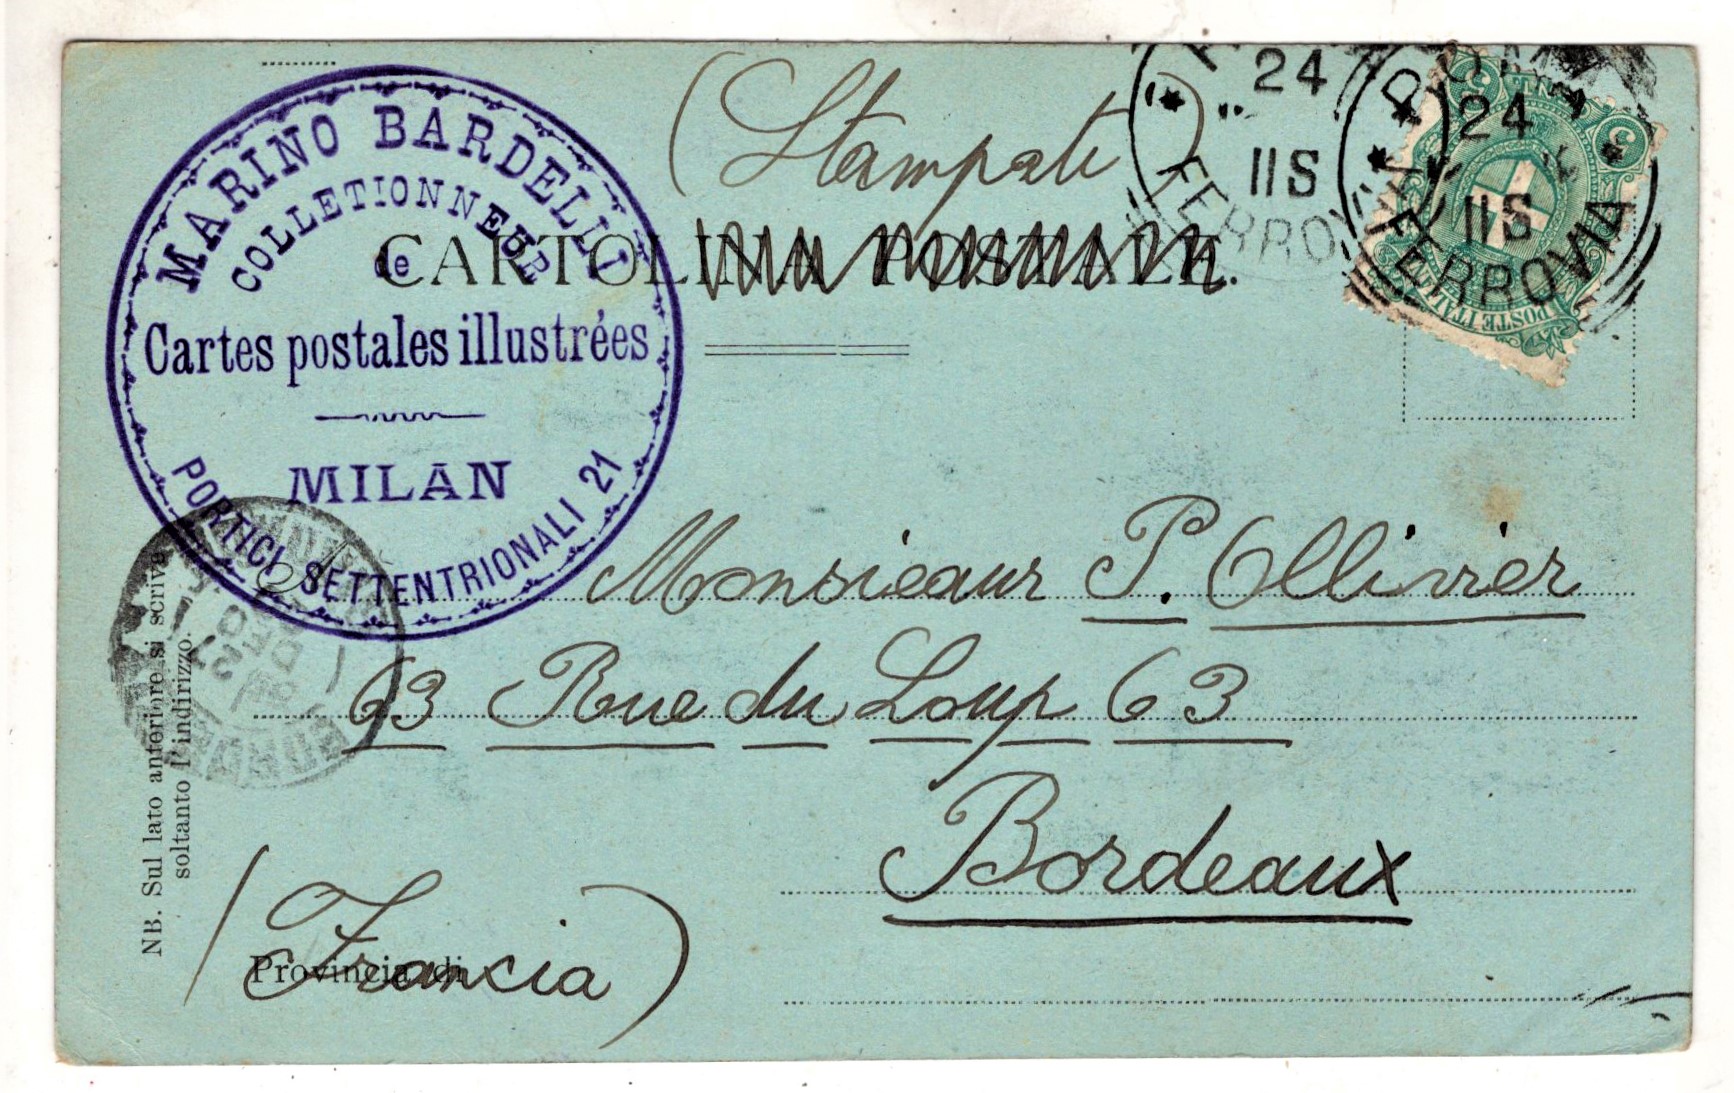 MARINO BARDELLI
COLLETIONNEUR
de
Cartes postales illustrées
MILAN
PORTICI SETTENTRIONALI 21
(Stampate)
CARTOLINA POSTALE.
24
11S
FERROVIA
24
11S
FERROVIA
5
5
POSTE ITAL
A Monsieaur P. Ollivier
63 Rue du Loup 63
Bordeaux
Provincia di
(Francia)
NB. Sul lato anteriore si scriva
soltanto l'indirizzo.
27
DEC